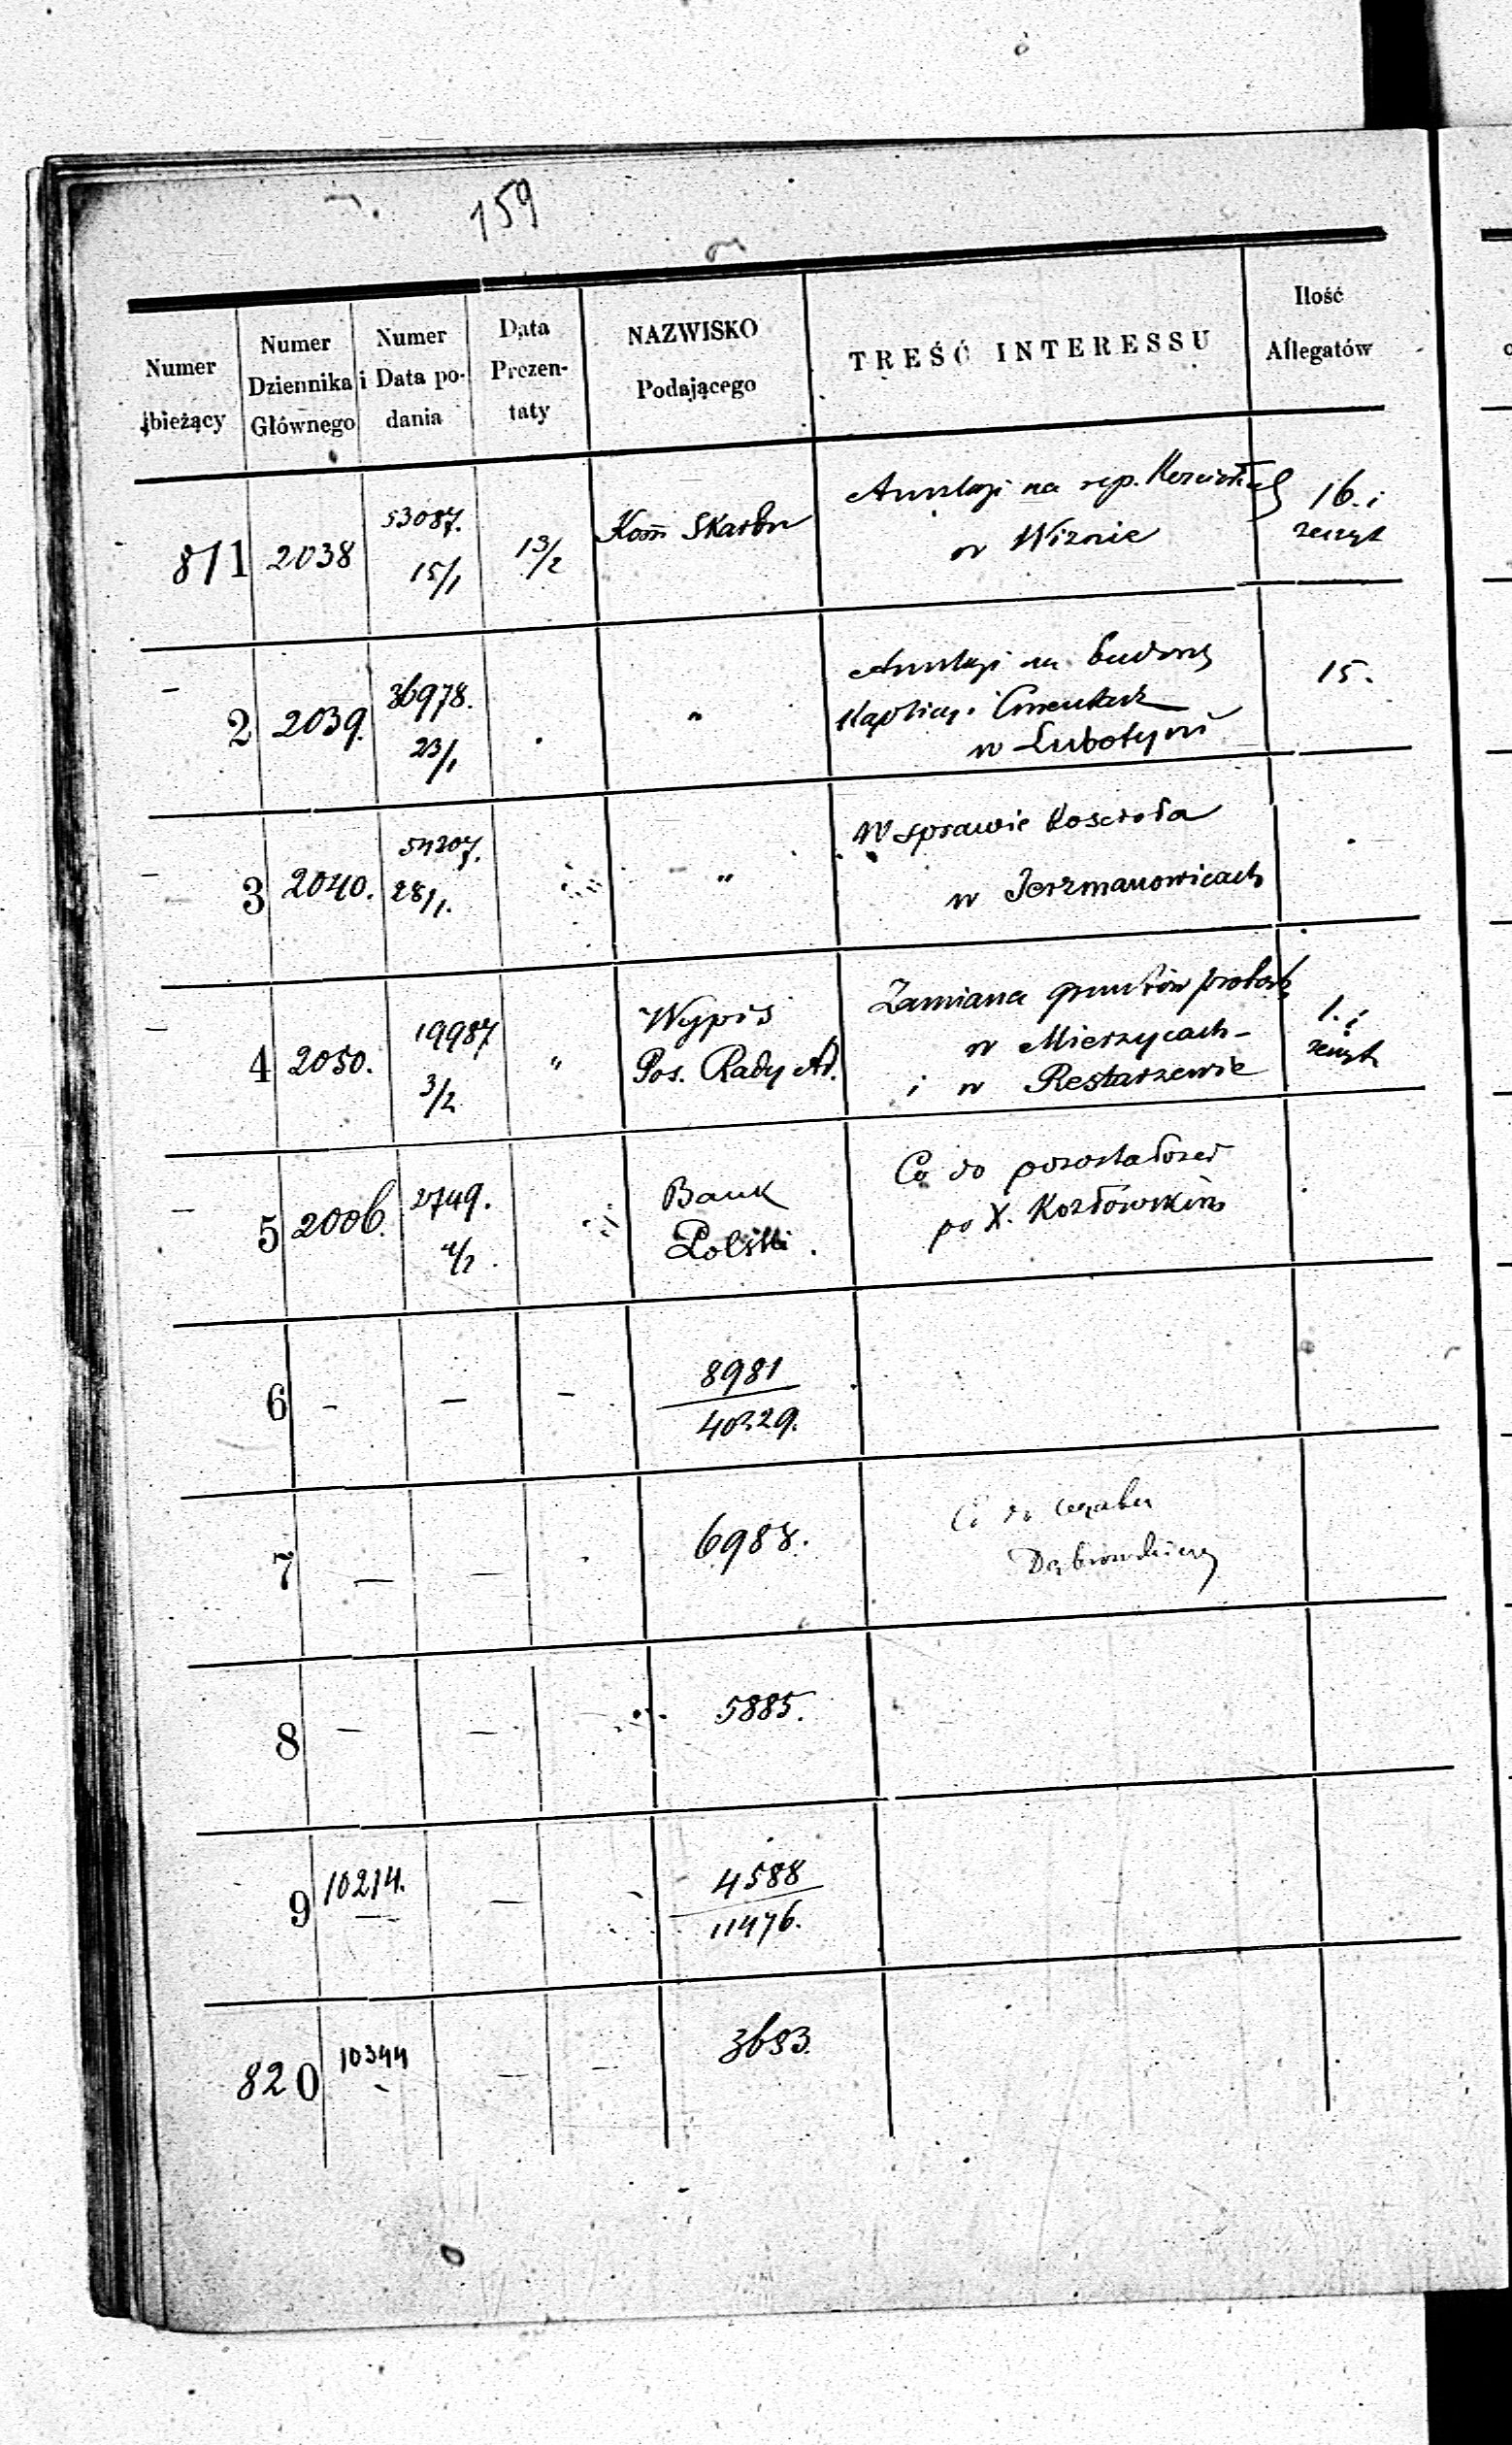 159
Numer bieżący
Numer Dziennika Głównego
Numer i Data podania
Data Prezentaty
NAZWISKO Podającego
TREŚĆ INTERESSU
Ilość Allegatów
811 2038 53087. 15/1 13/2 Kom̄ Skarbu
na rep.
w Wiznie
16. i
zeszyt
2 2039. 36978. 23/1 "
na budowę
Kaplicy i Cmentarz
w Lubotyni
15.
3 2040. 54207. 28/1. "
W sprawie Kościoła
w Jerzmanowicach
4 2050. 19987 3/2 "
Wypis
Pos. Rady Ad.
Zamiana gruntów probos.
w Mierzycach
i w Restarzewie
1. i
zeszyt
5 2006. 2749. 4/2.
Bank
Polski.
Co do pozostałości
po X. Kozłowskim
6 - - - 8981
40329.
7 - - 6988.
Co do
Dąbrowskiego
8 - - 5885.
9 10214. - 4588
11476.
820 10344 - - 3693.